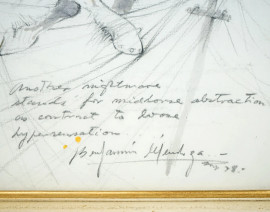 Another nightmare
stands for abstraction
as contrast to loose
hypersensation
Benjamin Mendoza